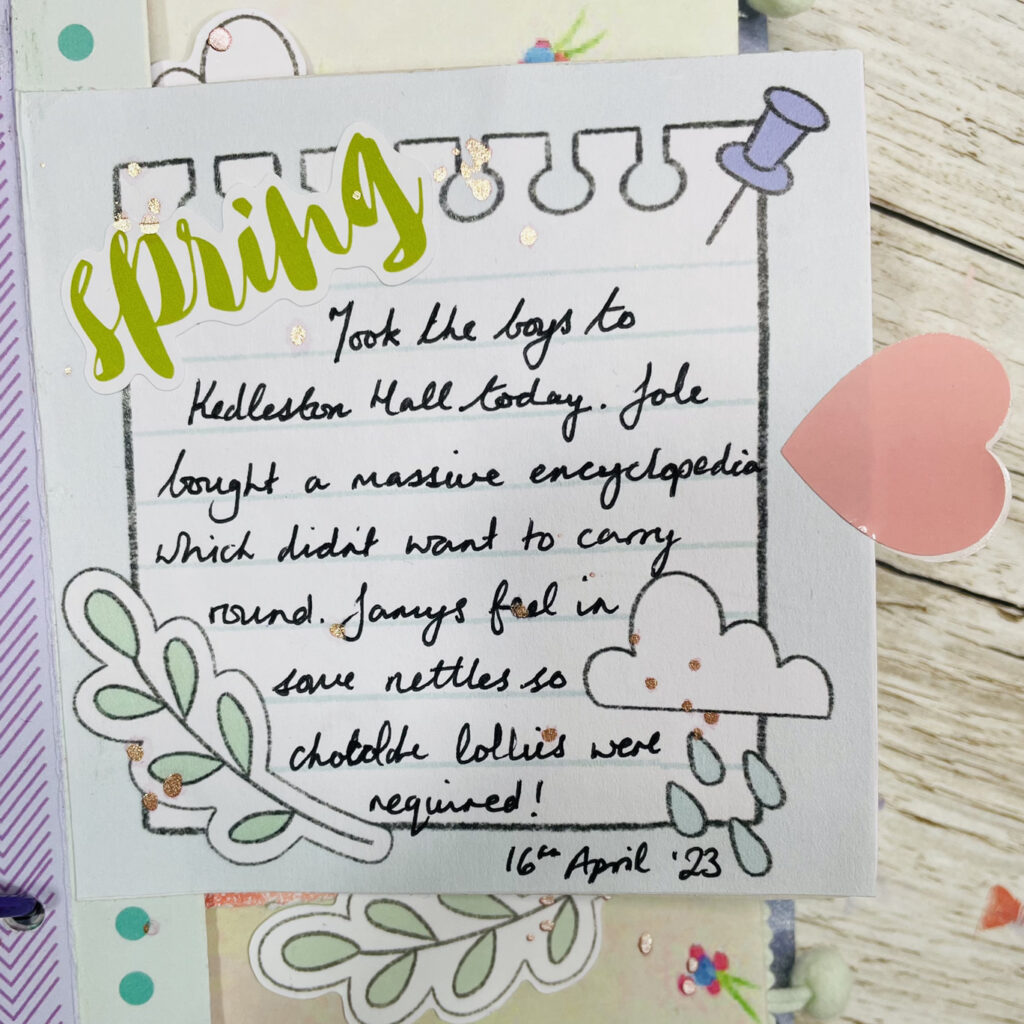 spring
Took the boys to
Kedleston Hall today. Jole
bought a massive encyclopedia
which didn't want to carry
round. Jamys feel in
some nettles so
chocolate lollies were
required!
16th April '23